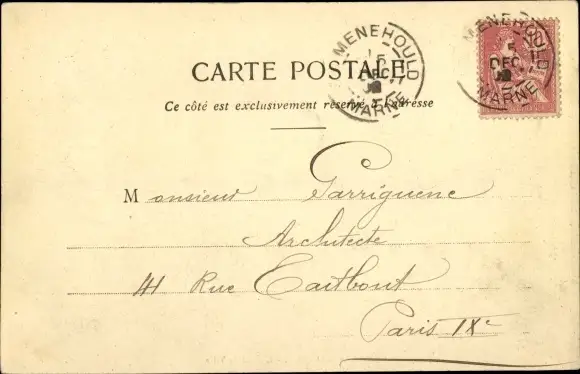 MENEHOULD
15
DEC
MARNE
MENEHOULD
5
DEC
MARNE
CARTE POSTALE
Ce côté est exclusivement réservé à l'adresse
Monsieur Garriguenc
Architecte
41 Rue Taitbout
Paris IXe